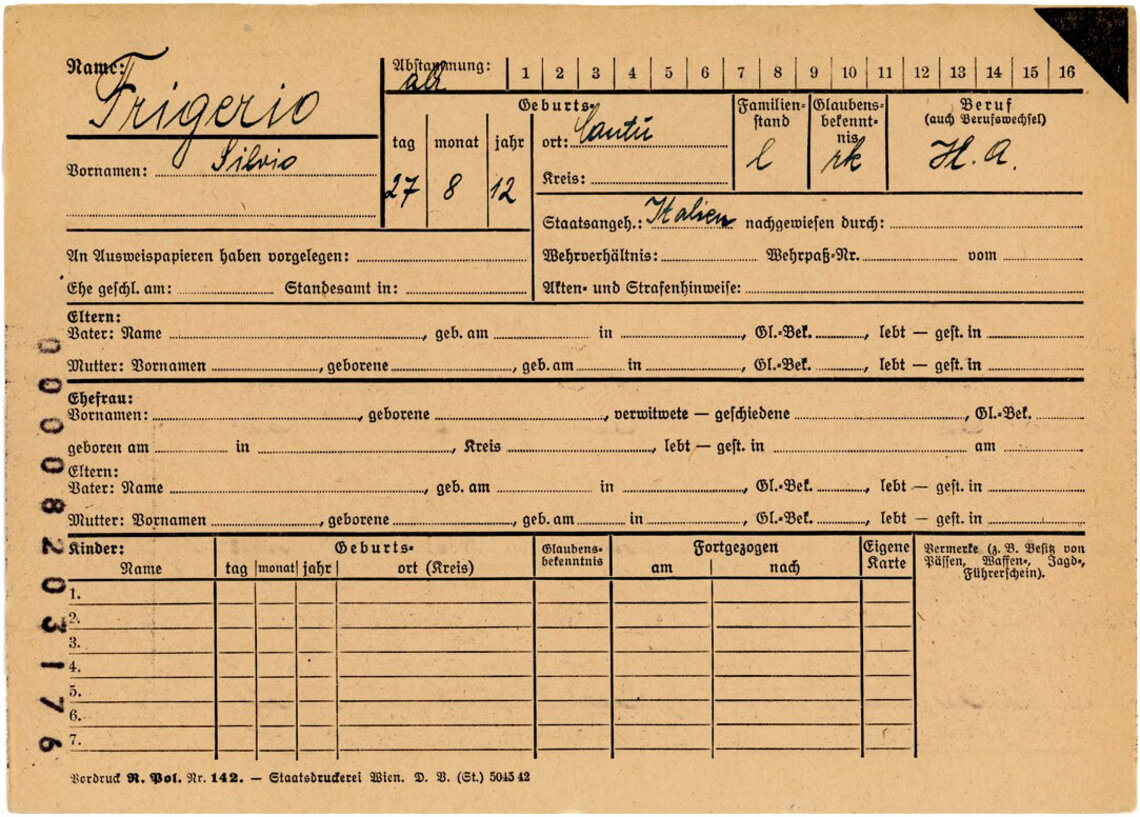 Name: Frigerio
Abstammung: 1 2 3 4 5 6 7 8 9 10 11 12 13 14 15 16
Vornamen: Silvio
Geburts-
tag monat jahr
27 8 12
ort: Cantù
Kreis:
Familien-
stand
l
Glaubens-
bekennt-
nis
rk
Beruf
(auch Berufswechsel)
H. A.
Staatsangeh.: Italien nachgewiesen durch:
An Ausweispapieren haben vorgelegen:
Wehrverhältnis: Wehrpaß-Nr. vom
Ehe geschl. am: Standesamt in:
Akten- und Strafenhinweise:
Eltern:
Vater: Name , geb. am in , Gl.-Bek. , lebt — gest. in
Mutter: Vornamen , geborene , geb. am in , Gl.-Bek. , lebt — gest. in
Ehefrau:
Vornamen: , geborene , verwitwete — geschiedene , Gl.-Bek.
geboren am in , Kreis , lebt — gest. in am
Eltern:
Vater: Name , geb. am in , Gl.-Bek. , lebt — gest. in
Mutter: Vornamen , geborene , geb. am in , Gl.-Bek. , lebt — gest. in
Kinder:
Name
Geburts-
tag monat jahr ort (Kreis)
Glaubens-
bekenntnis
Fortgezogen
am nach
Eigene
Karte
Vermerke (z. B. Besitz von
Pässen, Waffen-, Jagd-,
Führerschein).
1.
2.
3.
4.
5.
6.
7.
Vordruck R. Pol. Nr. 142. — Staatsdruckerei Wien. D. V. (St.) 5045 42
00008203176